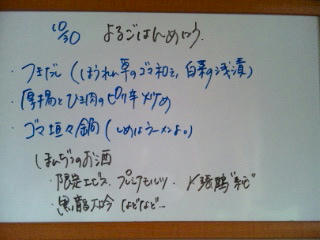 10/30 よるごはんめにゅう
・つきだし（ほうれん草のゴマ和え、白菜の浅漬）
・厚揚とひき肉のピリ辛炒め
・ゴマ坦々鍋（しめはラーメンよ。）
ほんじつのお酒
・限定エビス プレミアムモルツ 〆張鶴"純"
・黒龍大吟 などなど…